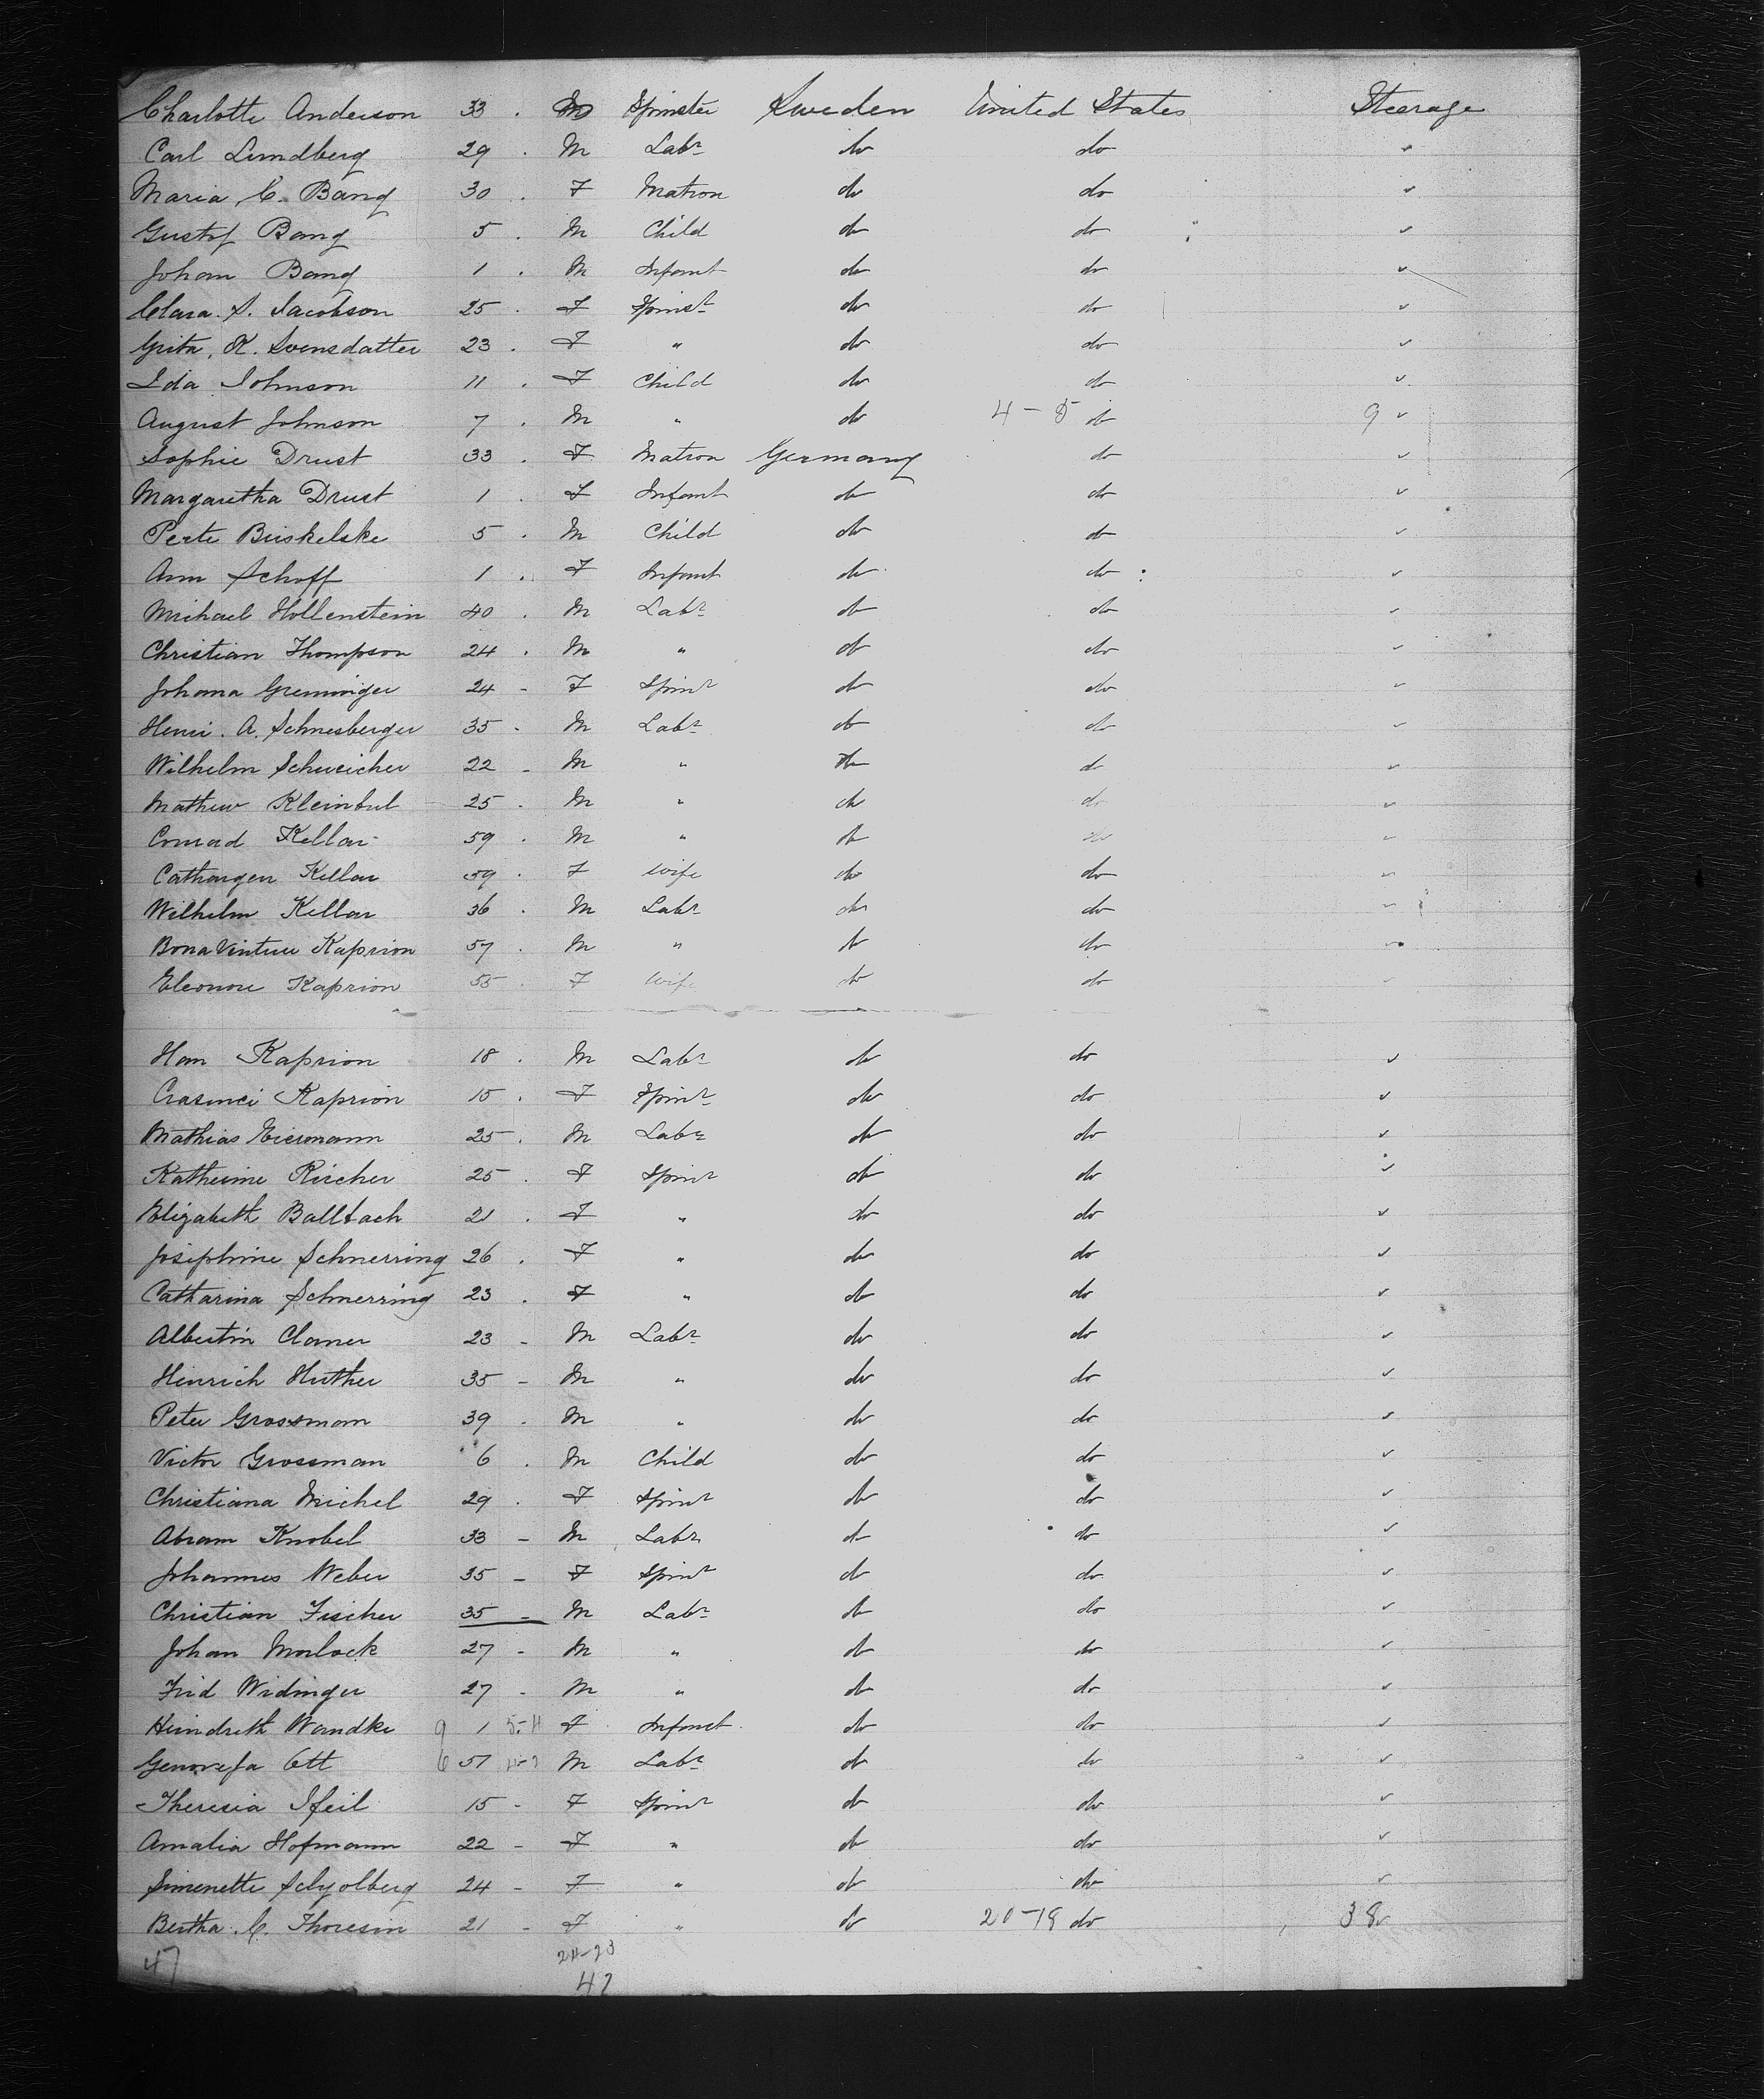 Charlotte Anderson 33 . M Spinster Sweden United States Steerage
Carl Lundberg 29 . M Labr do do "
Maria C. Bang 30 . F Matron do do "
Gustof Bang 5 . M Child do do "
Johan Bang 1 . M Infant do do "
Clara. S. Jacobson 25 . F Spinst do do "
Grita. K. Svensdatter 23 . F " do do "
Ida Johnson 11 . F Child do do "
August Johnson 7 . M " do 4-5 do 9 "
Sophie Drust 33 . F Matron Germany do "
Margaretha Drust 1 . F Infant do do "
Perte Buskelske 5 . M Child do do "
Ann Schoff 1 . F Infant do do "
Michael Hollenstein 40 . M Labr do do "
Christian Thompson 24 . M " do do "
Johana Greminger 24 - F Spinr do do "
Henri. A. Schnesberger 35 - M Labr do do "
Wilhelm Schweicher 22 - M " do do "
Mathew Kleinbul 25 . M " do do "
Conrad Kellar 59 . M " do do "
Cathargen Kellar 59 . F Wife do do "
Wilhelm Kellar 36 . M Labr do do "
BonaVinture Kaprion 57 . M " do do "
Eleonore Kaprion 55 . F Wife do do "
Han Kaprion 18 . M Labr do do "
Crasinci Kaprion 15 . F Spinr do do "
Mathias Eiermann 25 . M Labr do do "
Katherine Rircher 25 . F Spinr do do "
Elizabeth Balltach 21 . F " do do "
Josephine Schnerring 26 . F " do do "
Catharina Schnerring 23 . F " do do "
Albertin Claner 23 - M Labr do do "
Hinrich Huther 35 - M " do do "
Peter Grossman 39 - M " do do "
Victor Grossman 6 . M Child do do "
Christiana Michel 29 . F Spinr do do "
Abram Knobel 33 - M Labr do do "
Johannes Weber 35 - F Spinr do do "
Christian Fischer 35 - M Labr do do "
Johan Morlock 27 - M " do do "
Frid Widinger 27 - M " do do "
Heindreth Wandke 9 1 5-4 F Infant do do "
Genovefa Ott 6 51 M Labr do do "
Theresia Ifeil 15 - F Spinr do do "
Amalia Hofmann 22 - F " do do "
Simenette Schyolberg 24 - F " do do "
Bertha. C. Thoresin 21 - F " do 20-18 do 38 "
47 24-23
47